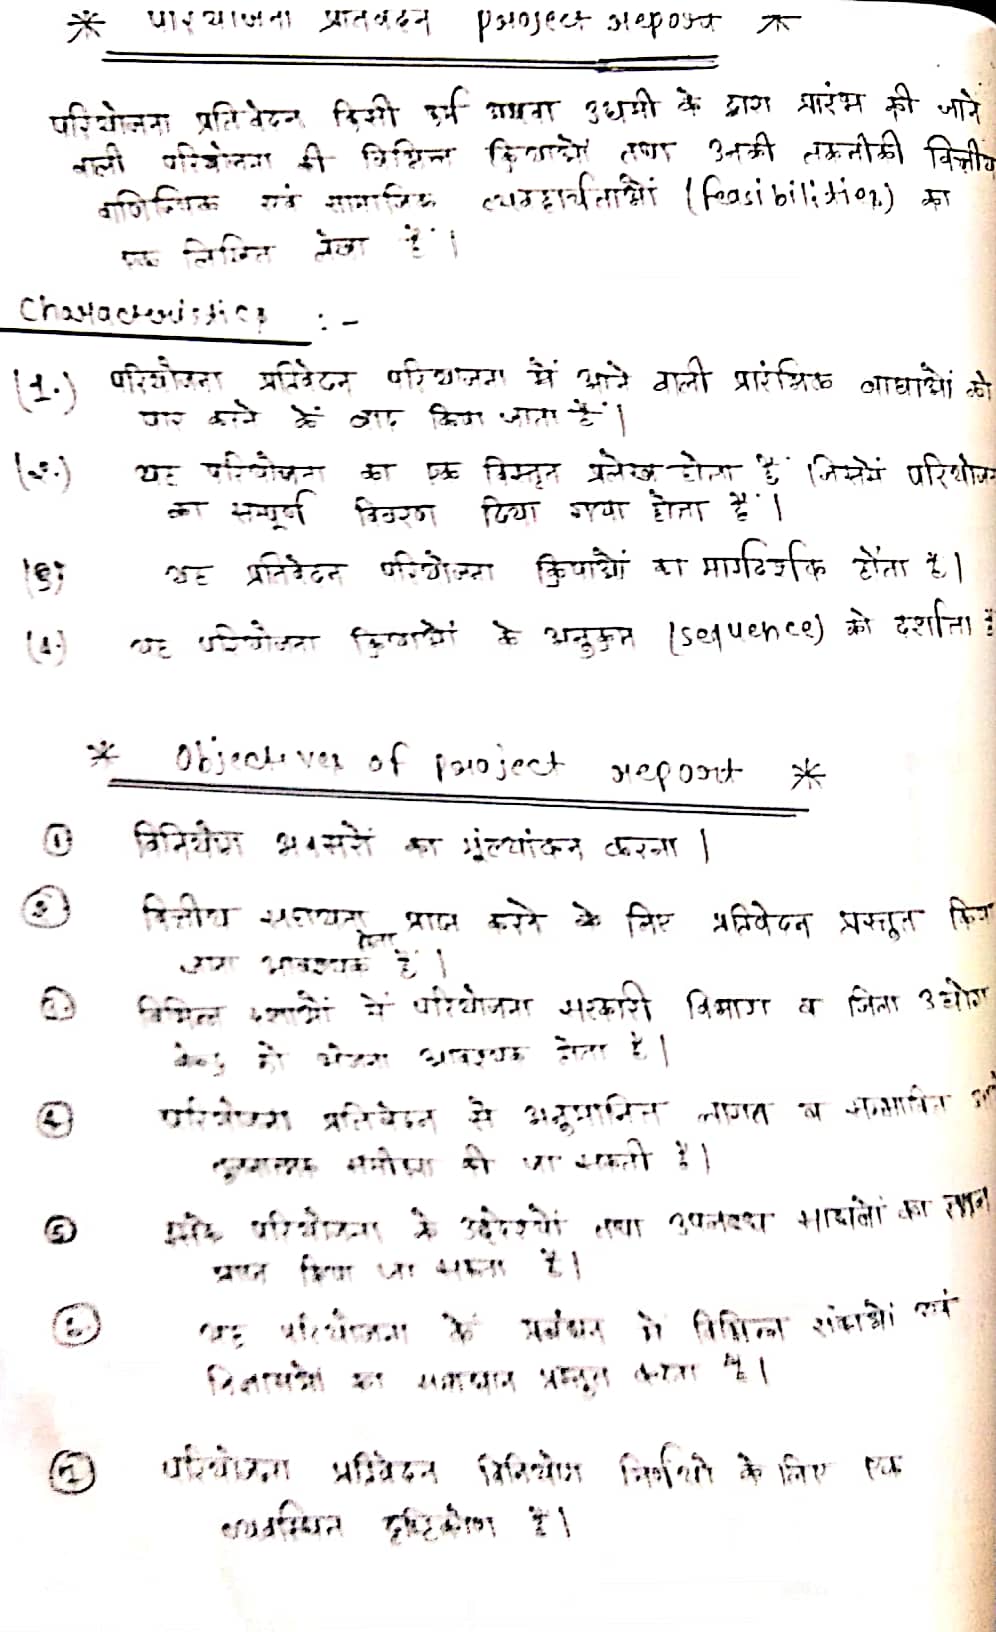 * परियोजना प्रतिवेदन Project report *
परियोजना प्रतिवेदन किसी फर्म अथवा उद्यमी के द्वारा प्रारंभ की जाने
वाली परियोजना की विभिन्न क्रियाओं तथा उनकी तकनीकी वित्तीय
वाणिज्यिक एवं सामाजिक व्यवहार्यताओं (feasibilities) का
एक लिखित लेखा है।
Characteristics :-
(1.) परियोजना प्रतिवेदन परियोजना में आने वाली प्रारंभिक बाधाओं को
पार करने के बाद किया जाता है।
(2.) यह परियोजना का एक विस्तृत प्रलेख होता है जिसमें परियोजना
का सम्पूर्ण विवरण दिया गया होता है।
(3) यह प्रतिवेदन परियोजना क्रियाओं का मार्गदर्शक होता है।
(4.) यह परियोजना क्रियाओं के अनुक्रम (sequence) को दर्शाता है
* Objectives of project report *
① विनियोग अवसरों का मूल्यांकन करना।
② वित्तीय सहायता प्राप्त करने के लिए प्रतिवेदन प्रस्तुत किया
जाना आवश्यक होता है।
③ विभिन्न दशाओं में परियोजना सरकारी विभाग व जिला उद्योग
केन्द्र को भेजना आवश्यक होता है।
④ परियोजना प्रतिवेदन से अनुमानित लागत व सम्भावित
तुलनात्मक समीक्षा की जा सकती है।
⑤ परियोजना के उद्देश्यों तथा उपलब्ध साधनों का ज्ञान
प्राप्त किया जा सकता है।
⑥ यह परियोजना के प्रबंधन में विभिन्न शंकाओं एवं
का समाधान प्रस्तुत करता है।
⑦ परियोजना प्रतिवेदन विनियोग निर्णयों के लिए एक
व्यवस्थित दृष्टिकोण है।